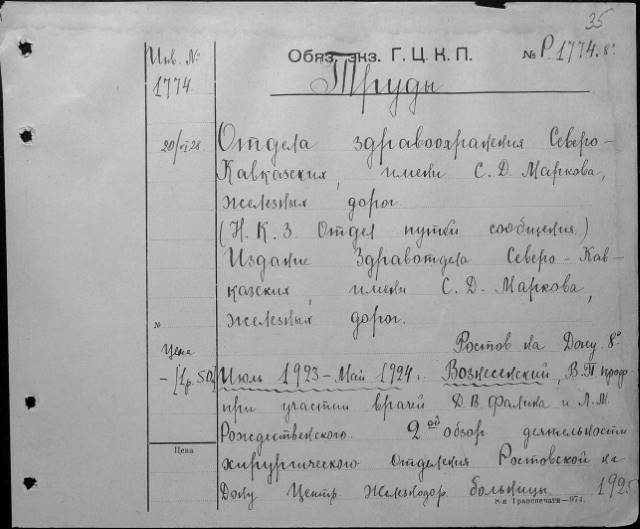 35
Инв. №
1774.
Обяз. экз. Г. Ц. К. П.
№ Р. 1774. 8°
Труды
20/VI 28.
Отдела здравоохранения Северо-
Кавказских, имени С. Д. Маркова,
железных дорог
(Н. К. З. Отдел путей сообщения.)
Издание Здравотдела Северо-Кав-
казских, имени С. Д. Маркова,
железных дорог.
№
Ростов на Дону 8°
Цена
- [1р. 50.]
Июль 1923 - Май 1924. Вознесенский, В. П. проф.
при участии врачей Д. В. Фалика и Л. М.
Рождественского. 2ой обзор деятельности
Цена
хирургического Отделения Ростовской на
Дону Центр. Железнодор. больницы. 1925
Транспечати—974.